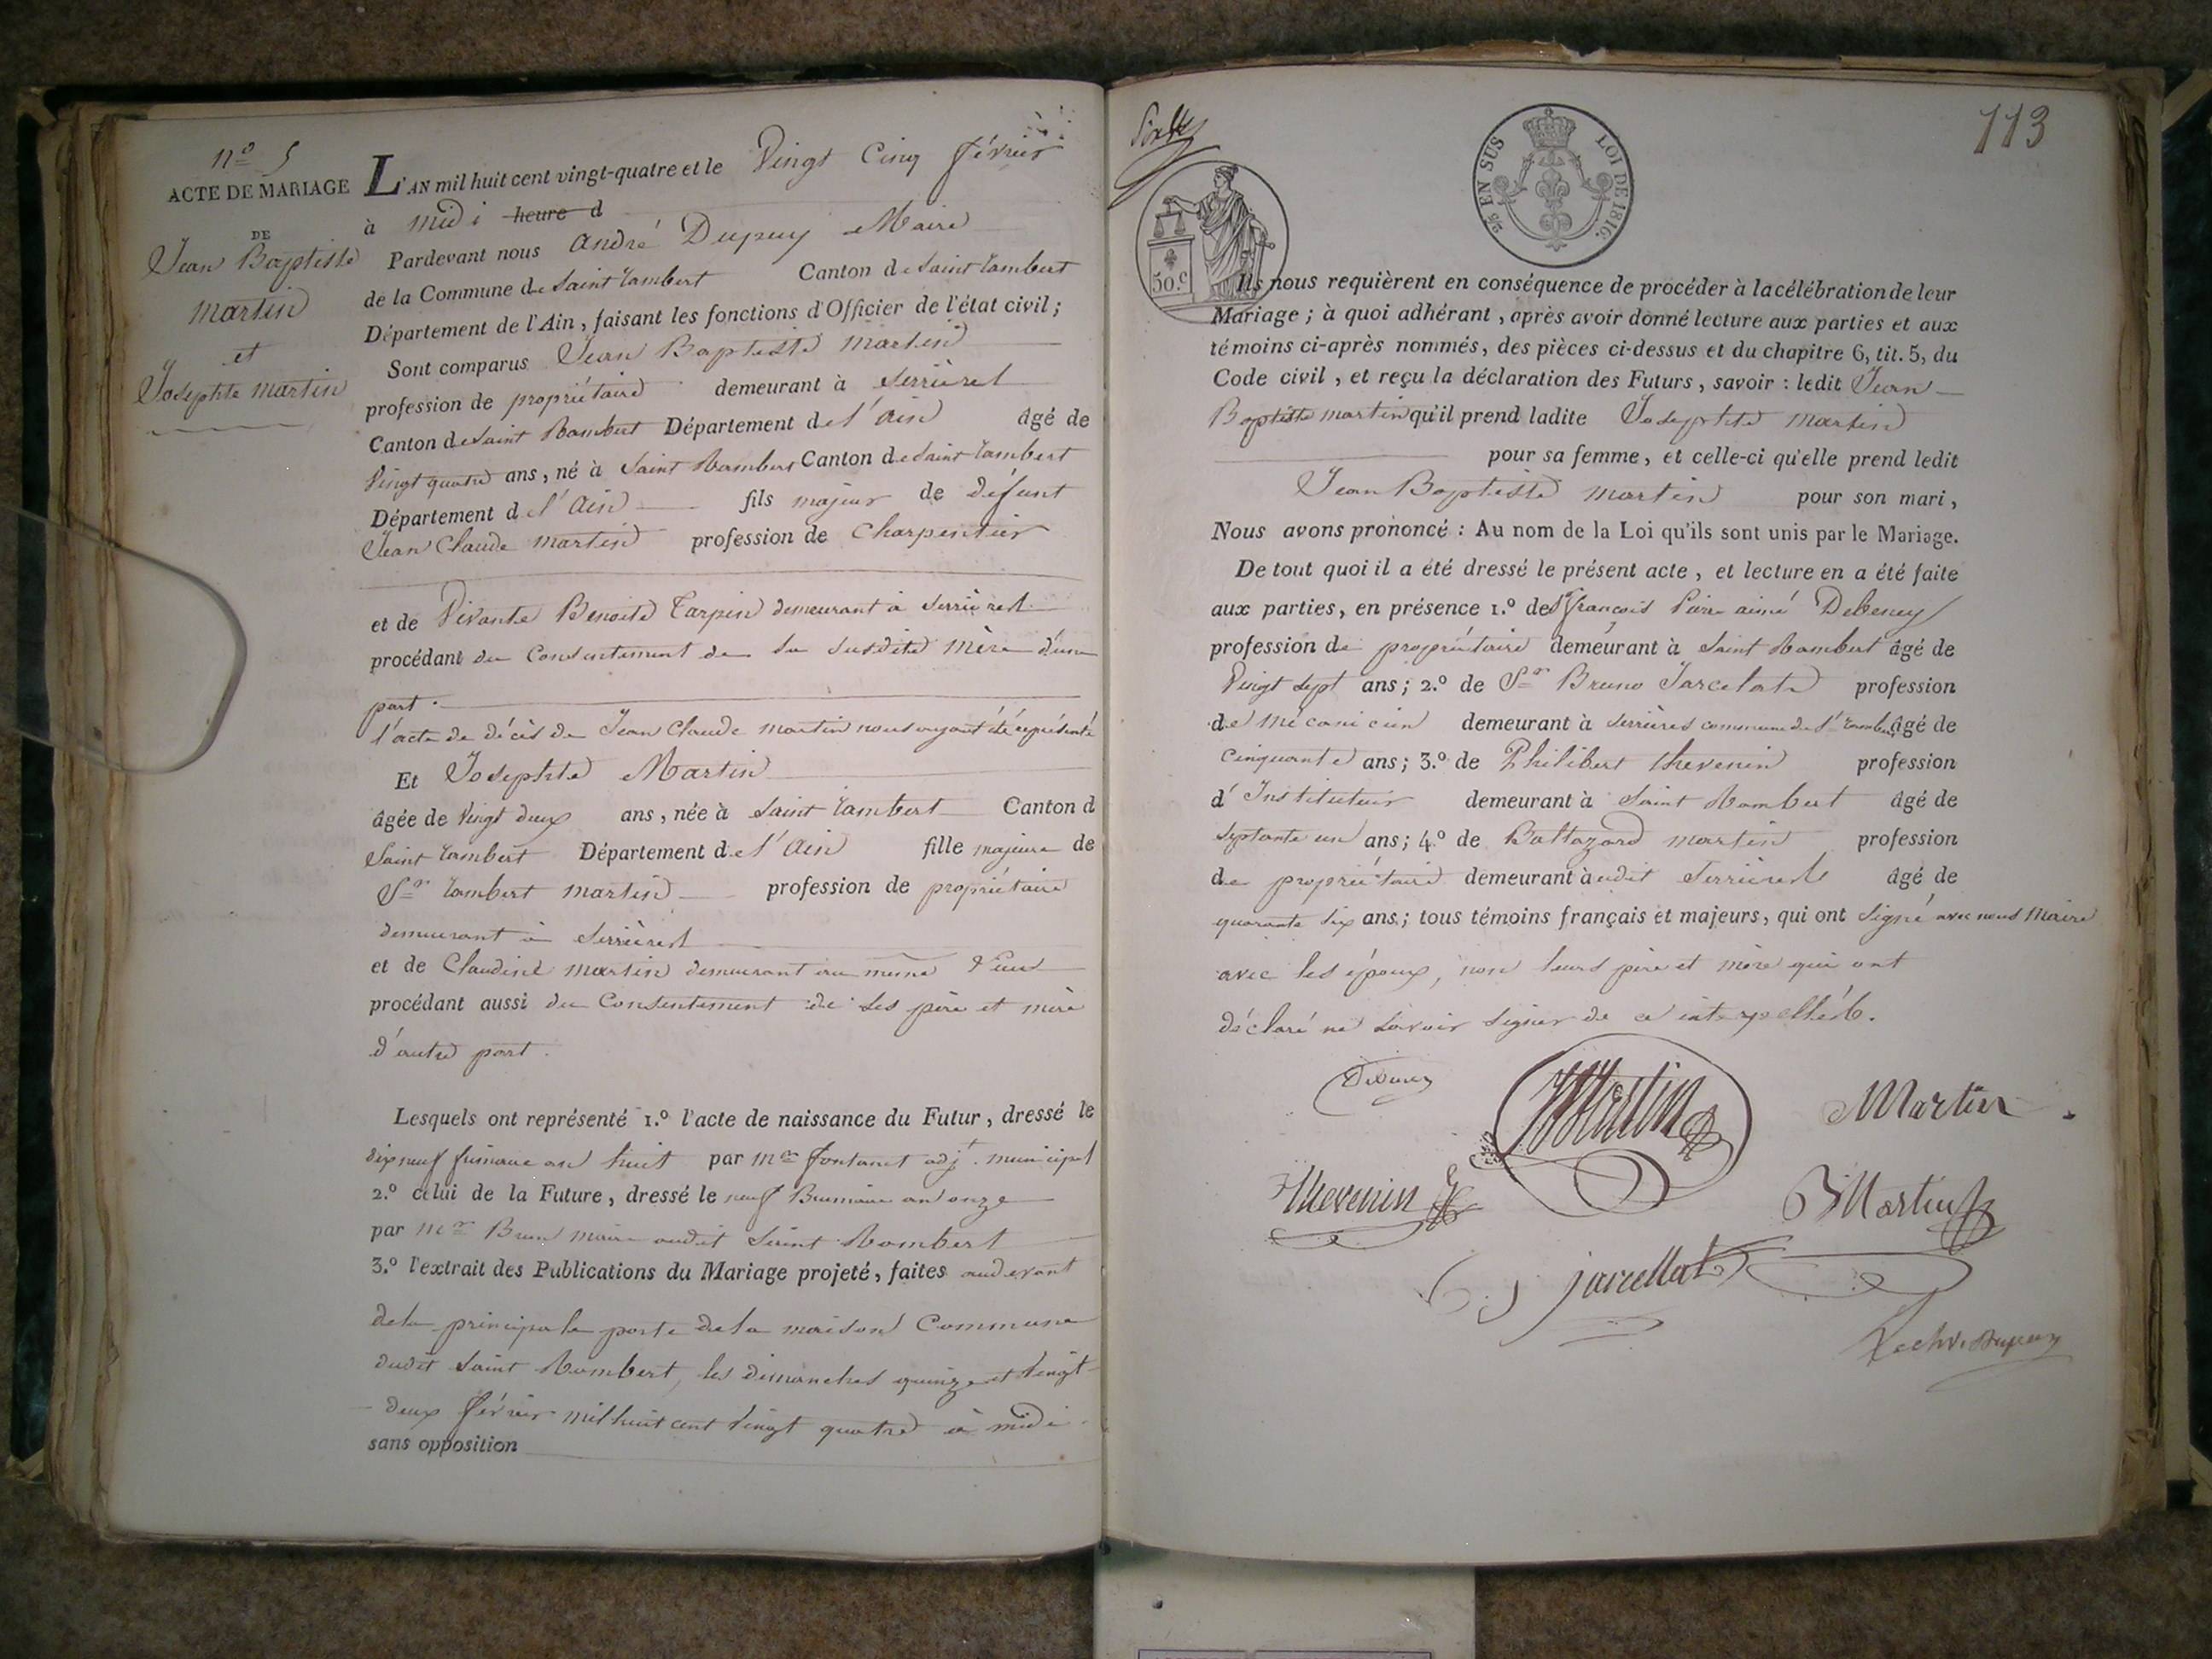 nº 5
ACTE DE MARIAGE
DE
Jean Baptiste
Martin
et
Josephte Martin
L'AN mil huit cent vingt-quatre et le Vingt Cinq février
à midi heure d
Pardevant nous André Dupuy Maire
de la Commune de Saint Rambert Canton de Saint Rambert
Département de l'Ain, faisant les fonctions d'Officier de l'état civil;
Sont comparus Jean Baptiste Martin
profession de propriétaire demeurant à Serrières
Canton de Saint Rambert Département de l'Ain âgé de
Vingt quatre ans, né à Saint Rambert Canton de Saint Rambert
Département de l'Ain fils majeur de défunt
Jean Claude Martin profession de Charpentier
et de Vivante Benoite Tarpin demeurant à Serrières
procédant du Consentement de sa susdite Mère d'une
part.
l'acte de décès de Jean Claude Martin nous ayant été représenté
Et Josephte Martin
âgée de Vingt deux ans, née à Saint Rambert Canton d
Saint Rambert Département de l'Ain fille majeure de
Sr Rambert Martin profession de propriétaire
demeurant à Serrières
et de Claudine Martin demeurant au même lieu
procédant aussi du Consentement de ses père et mère
d'autre part.
Lesquels ont représenté 1.º l'acte de naissance du Futur, dressé le
dix neuf frimaire an huit par Mr fontanet adjt. municipal
2.º celui de la Future, dressé le neuf Brumaire an onze
par Mr Brun Maire audit Saint Rambert
3.º l'extrait des Publications du Mariage projeté, faites audevant
de la principale porte de la maison Commune
dudit Saint Rambert, les dimanches quinze et vingt-
deux février mil huit cent vingt quatre à midi
sans opposition
113
2/10 EN SUS LOI DE 1816.
50.c
Ils nous requièrent en conséquence de procéder à la célébration de leur
Mariage; à quoi adhérant, après avoir donné lecture aux parties et aux
témoins ci-après nommés, des pièces ci-dessus et du chapitre 6, tit. 5, du
Code civil, et reçu la déclaration des Futurs, savoir : ledit Jean
Baptiste Martin qu'il prend ladite Josephte Martin
pour sa femme, et celle-ci qu'elle prend ledit
Jean Baptiste Martin pour son mari,
Nous avons prononcé : Au nom de la Loi qu'ils sont unis par le Mariage.
De tout quoi il a été dressé le présent acte, et lecture en a été faite
aux parties, en présence 1.º de Sr françois aimé Debeney
profession de propriétaire demeurant à Saint Rambert âgé de
Vingt sept ans; 2.º de Sr Bruno Jarcelat profession
de Mécanicien demeurant à Serrières commune de St Rambert âgé de
Cinquante ans; 3.º de Philibert Thevenin profession
d'Instituteur demeurant à Saint Rambert âgé de
septante un ans; 4.º de Baltazard Martin profession
de propriétaire demeurant audit Serrières âgé de
quarante six ans; tous témoins français et majeurs, qui ont signé avec nous Maire
avec les époux, non leurs père et mère qui ont
déclaré ne savoir signer de ce interpellés.
Martin
Martin
Thevenin
BMartin
jarcellat
Dupuy